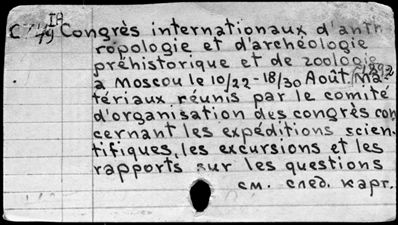 IA
C 7/79 Congrès internationaux d'anth
ropologie et d'archéologie
préhistorique et de zoologie
à Moscou le 10/22-18/30 Août 1892 Ma-
tériaux réunis par le comité
d'organisation des congrès con
cernant les expéditions scien-
tifiques, les excursions et les
rapports sur les questions
см. след. карт.